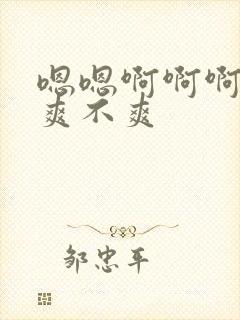 嗯嗯啊啊啊
爽不爽
邹忠平